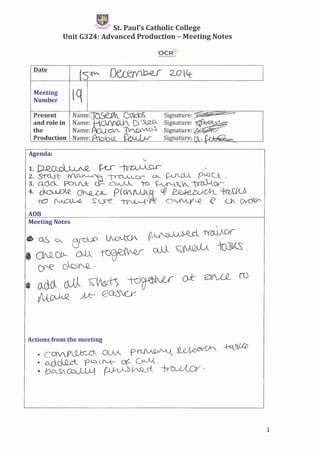 St. Paul's Catholic College
Unit G324: Advanced Production – Meeting Notes
OCR
Date
15th December 2014
Meeting Number
19
Present and role in the Production
Name: Joseph Signature:
Name: Hannah D'Rea Signature:
Name: Aaron Thomas Signature:
Name: Phoebe Fowler Signature:
Agenda:
1. Deadline for trailor
2. Start making trailor a final piece.
3. add point of call to finish trailor
4. double check Planning & Research tasks
to make sure they're complete & in order
AOB
Meeting Notes
as a group watch finalised trailor
check all together all small tasks
are done.
add all shots together at once to
make it easier.
Actions from the meeting
• completed all primary research tasks
• added point of call.
• basically finished trailor.
1